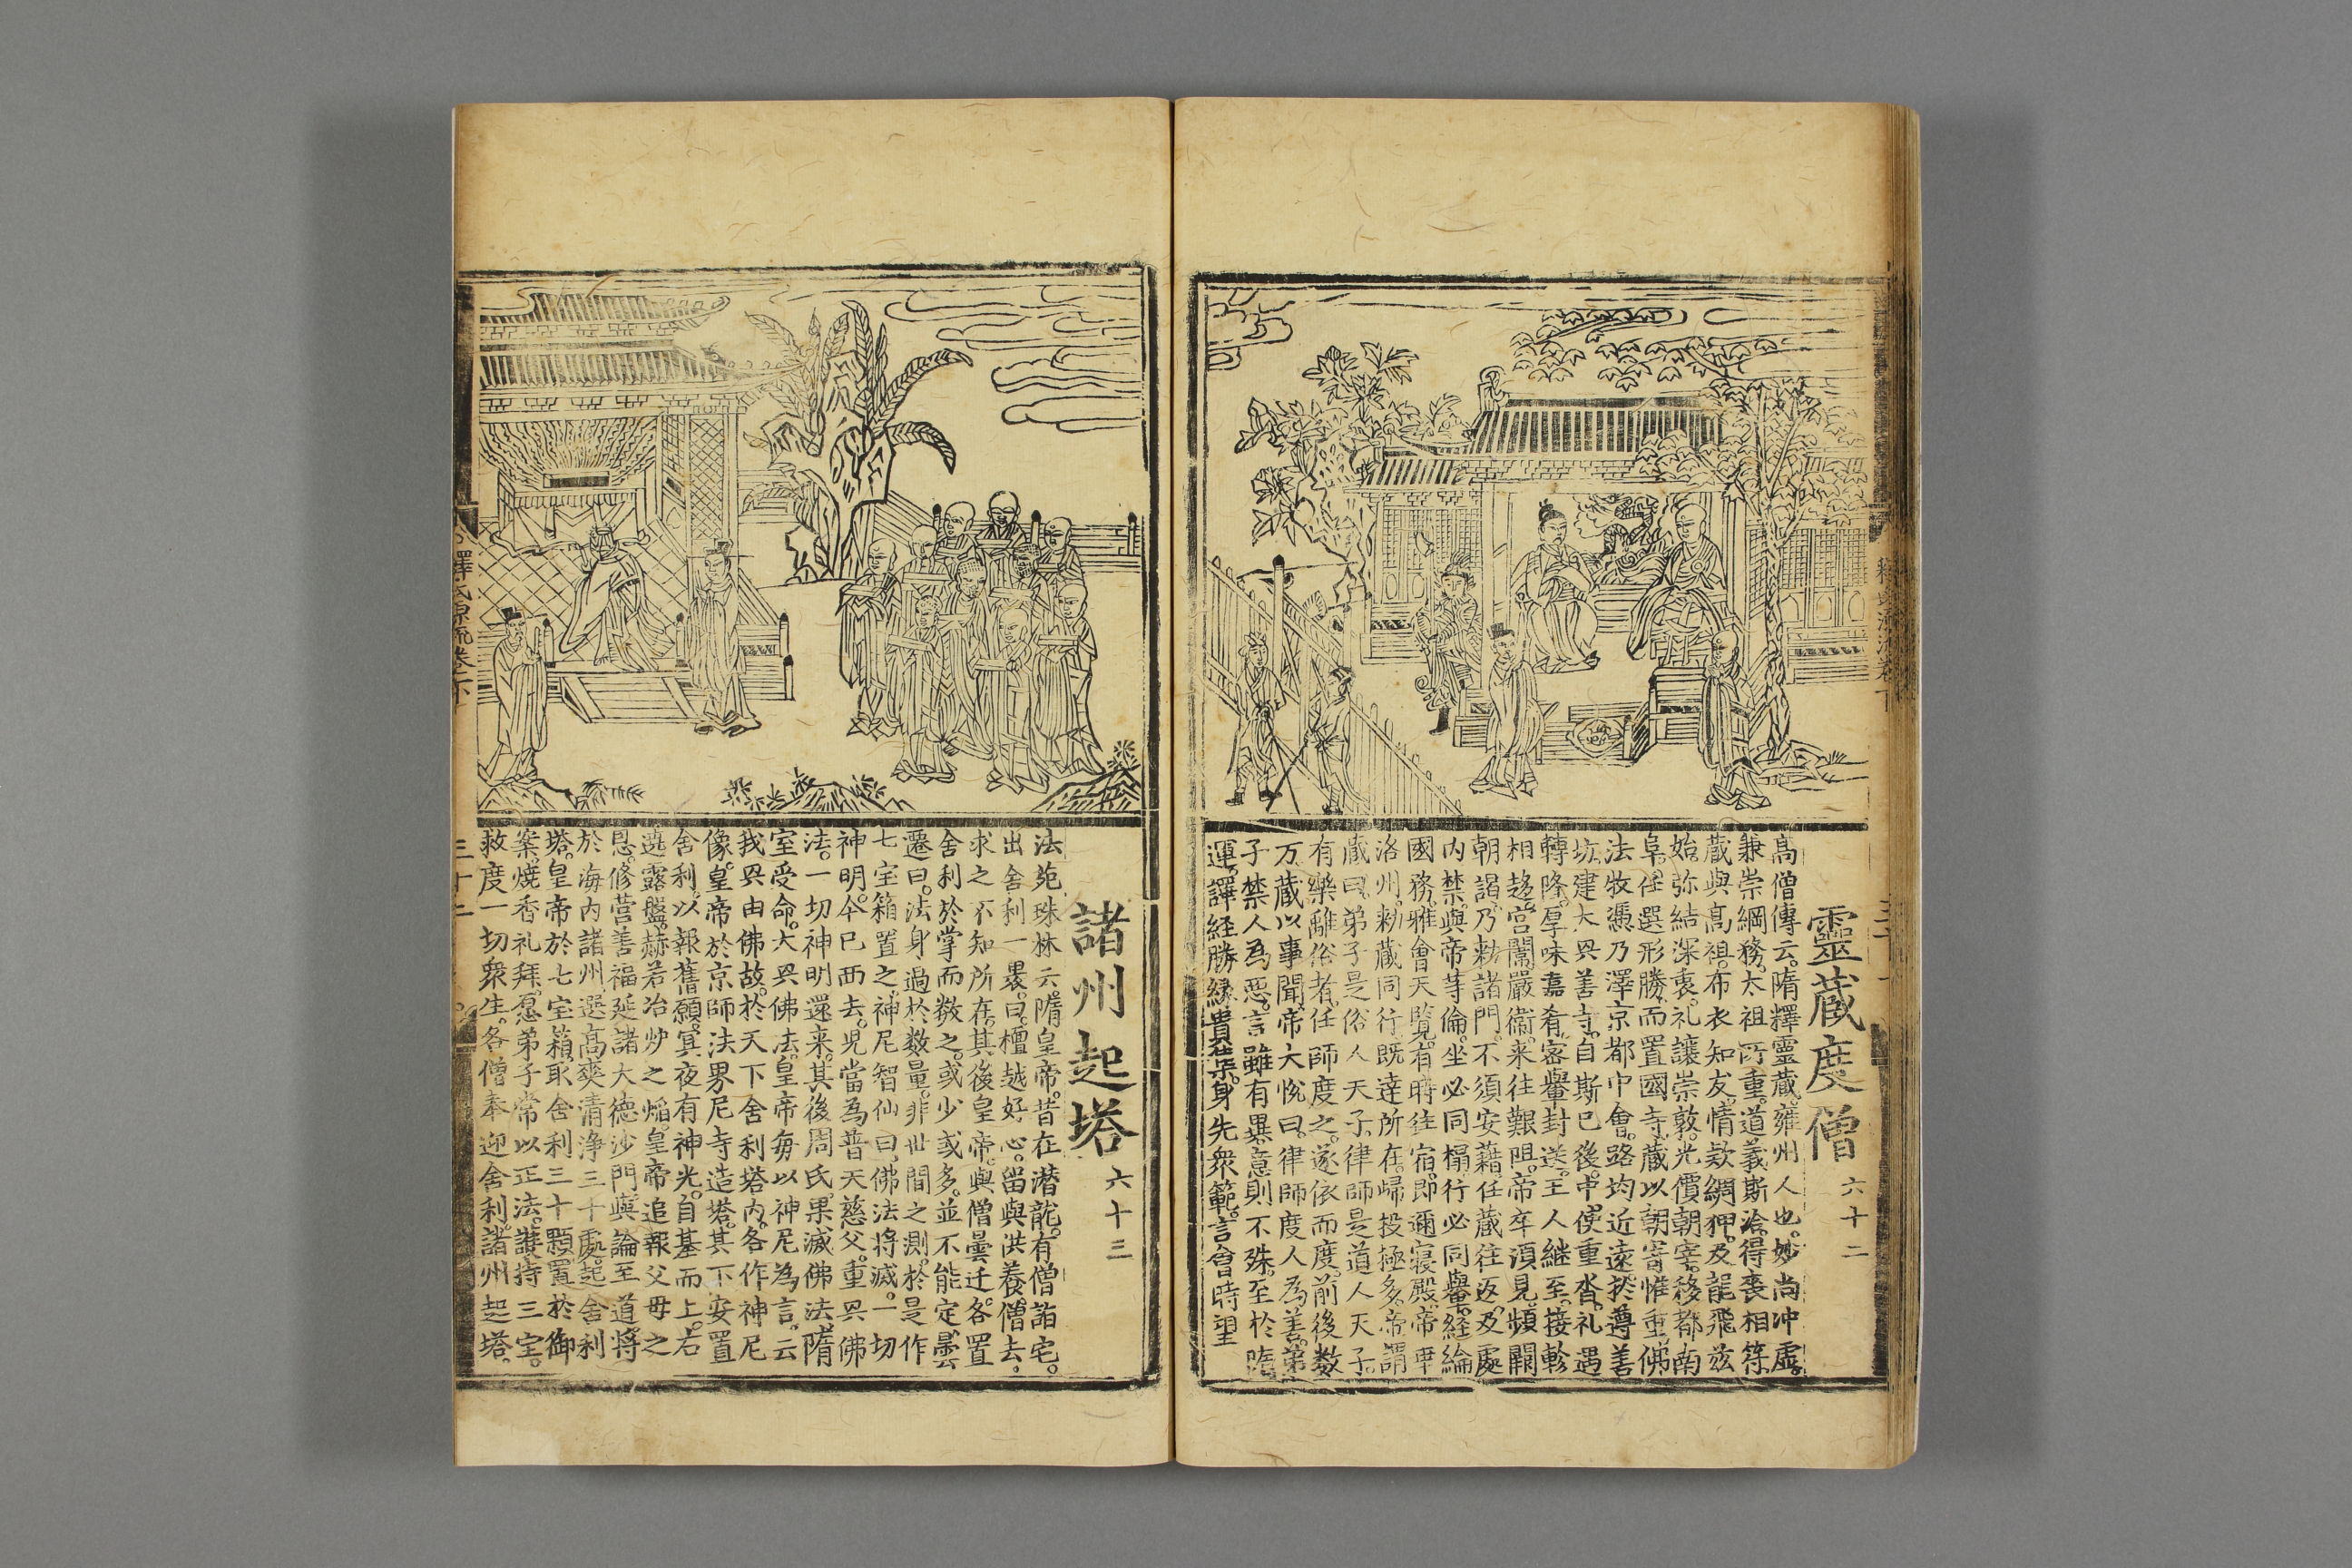 靈藏度僧 六十二
高僧傳云。隋釋靈藏。雍州人也。妙尚冲虛。
兼崇綱務。太祖所重。道義斯洽。得喪相符。
藏與高祖。布衣知友。情款綢狎。及龍飛茲
始。弥結深衷。礼讓崇敦。光價朝宰。移都南
阜。任選形勝。而置國寺。藏以朝寄惟重。佛
法攸憑。乃澤京都中會。路均近遠。於遵善
坊。建大興善寺。自斯已後。中使重沓。礼遇
轉隆。厚味嘉肴。密轝封送。王人継至。接軫
相趍。宮闈嚴衛。来往艱阻。帝卒湏見。頻闕
朝謁。乃勑諸門。不須安藉。任藏往返。及處
内禁。與帝等倫。坐必同榻。行必同轝。経綸
國務。雅會天覽。有時住宿。即邇寝殿。帝幸
洛州。勑藏同行。既達所在。歸投極多。帝謂
藏曰。弟子是俗人天子。律師是道人天子。
有樂離俗者。任師度之。遂依而度。前後数
万。藏以事聞。帝大悅曰。律師度人為善。弟
子禁人為惡。言雖有異。意則不殊。至於隋
運。譯経勝緣。貴莅。身先衆範。言會時望
諸州起塔 六十三
法苑珠林云。隋皇帝。昔在潜龍。有僧詣宅。
出舍利一裹。曰。檀越好心。畱與洪養。僧去。
求之不知所在。其後皇帝。與僧曇迁。各置
舍利於掌而数之。或少或多。並不能定。曇
遷曰。法身過於数量。非世間之測。於是作
七宝箱置之。神尼智仙曰。佛法将滅。一切
神明。今已西去。児當為普天慈父。重興佛
法。一切神明還来。其後周氏。果滅佛法。隋
室受命。大興佛法。皇帝每以神尼為言。云
我興由佛故。於天下舍利塔內。各作神尼
像。皇帝於京師法界尼寺造塔。其下安置
舍利。以報舊願。冥夜有神光。自基而上。右
遶露盤。赫若冶炉之焰。皇帝追報父母之
恩。修营善福。延諸大德沙門。與論至道。將
於海內諸州。選高爽清浄三十處。起舍利
塔。皇帝於七宝箱。取舍利三十顆。置於御
案。燒香礼拜。愿弟子常以正法。護持三宝。
救度一切衆生。各僧奉迎舍利。諸州起塔。
釋氏源流卷之下
三十二